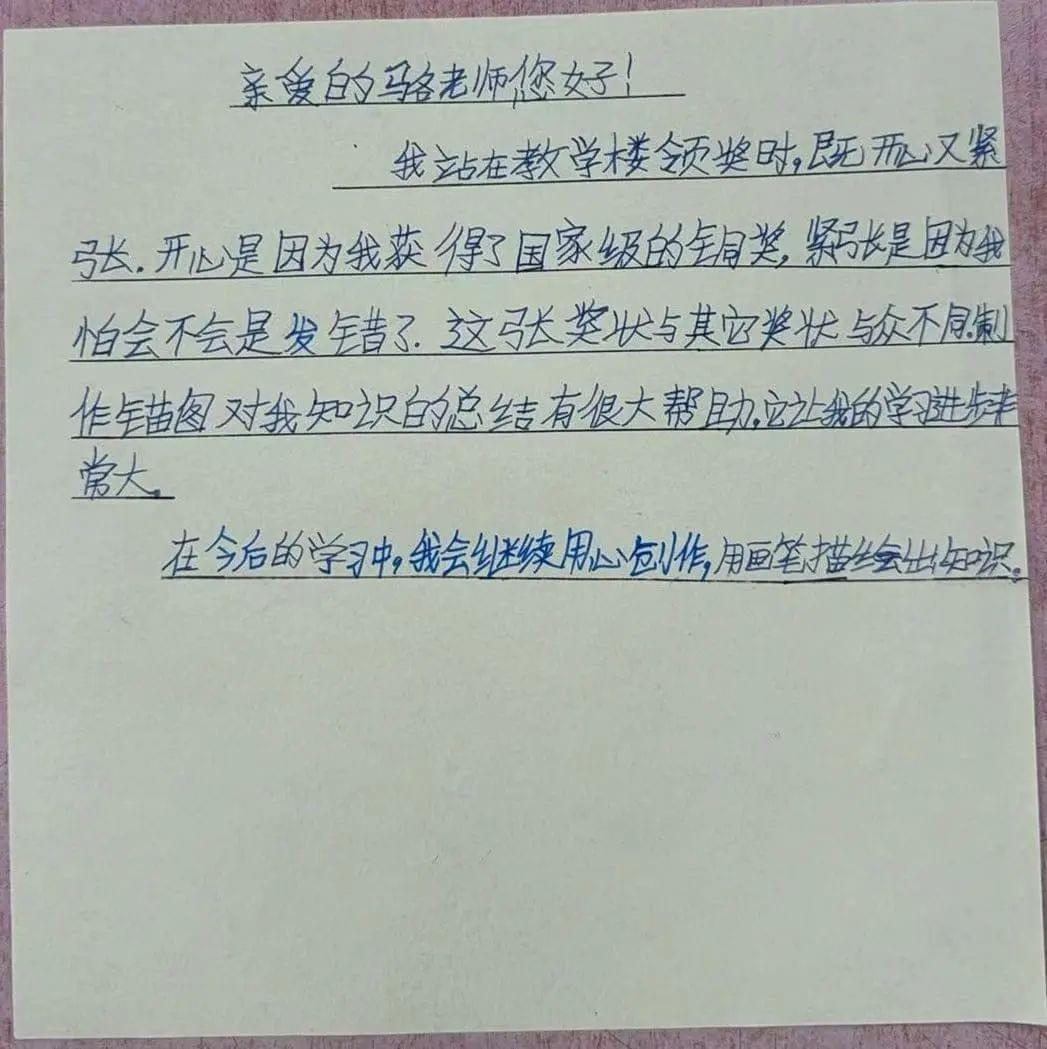 亲爱的骆老师,您好!
我站在教学楼领奖时,既开心又紧
张.开心是因为我获得了国家级的锚图奖,紧张是因为我
怕会不会是发错了.这张奖状与其它奖状与众不同.制
作锚图对我知识的总结有很大帮助,它让我的学习进步非
常大。
在今后的学习中,我会继续用心创作,用画笔描绘出知识。